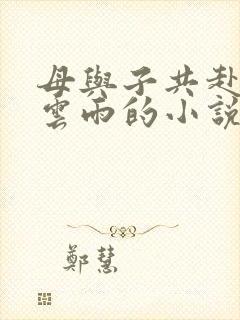 母與子共赴
雲雨的小說
鄭慧